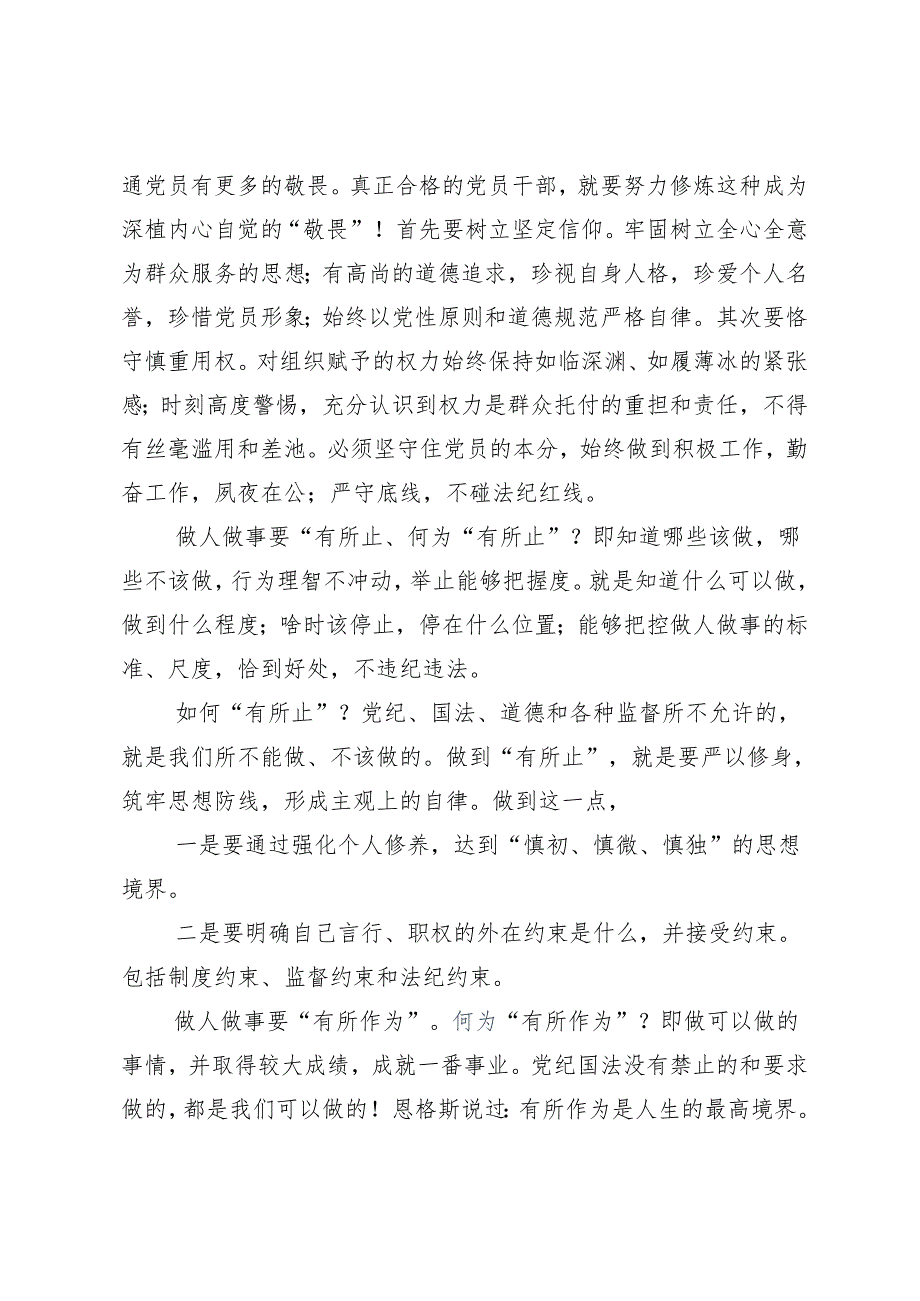 通党员有更多的敬畏。真正合格的党员干部，就要努力修炼这种成为
深植内心自觉的“敬畏”！首先要树立坚定信仰。牢固树立全心全意
为群众服务的思想；有高尚的道德追求，珍视自身人格，珍爱个人名
誉，珍惜党员形象；始终以党性原则和道德规范严格自律。其次要恪
守慎重用权。对组织赋予的权力始终保持如临深渊、如履薄冰的紧张
感；时刻高度警惕，充分认识到权力是群众托付的重担和责任，不得
有丝毫滥用和差池。必须坚守住党员的本分，始终做到积极工作，勤
奋工作，夙夜在公；严守底线，不碰法纪红线。
做人做事要“有所止、何为“有所止”？即知道哪些该做，哪
些不该做，行为理智不冲动，举止能够把握度。就是知道什么可以做，
做到什么程度；啥时该停止，停在什么位置；能够把控做人做事的标
准、尺度，恰到好处，不违纪违法。
如何“有所止”？党纪、国法、道德和各种监督所不允许的，
就是我们所不能做、不该做的。做到“有所止”，就是要严以修身，
筑牢思想防线，形成主观上的自律。做到这一点，
一是要通过强化个人修养，达到“慎初、慎微、慎独”的思想
境界。
二是要明确自己言行、职权的外在约束是什么，并接受约束。
包括制度约束、监督约束和法纪约束。
做人做事要“有所作为”。何为“有所作为”？即做可以做的
事情，并取得较大成绩，成就一番事业。党纪国法没有禁止的和要求
做的，都是我们可以做的！恩格斯说过：有所作为是人生的最高境界。